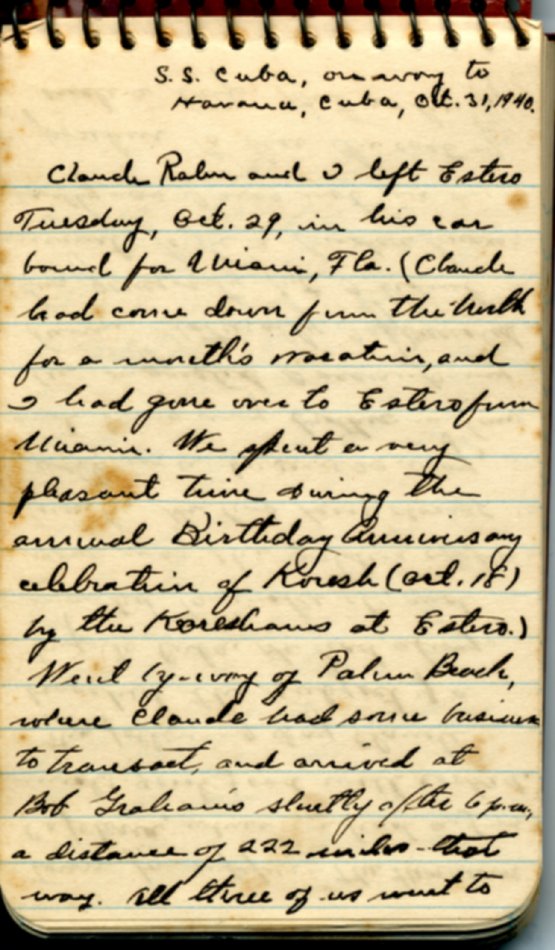 S.S. Cuba, on way to
Havana, Cuba, Oct. 31, 1940.
Claude Rahn and I left Estero
Tuesday, Oct. 29, in his car
bound for Miami, Fla. (Claude
had come down from the North
for a month's vacation, and
I had gone over to Estero from
Miami. We spent a very
pleasant time during the
annual Birthday Anniversary
celebration of Koresh (Oct. 18)
by the Koreshans at Estero.)
Went by-way of Palm Beach,
where Claude had some business
to transact, and arrived at
Bob Graham's shortly after 6 p.m.,
a distance of 222 miles that
way. All three of us went to